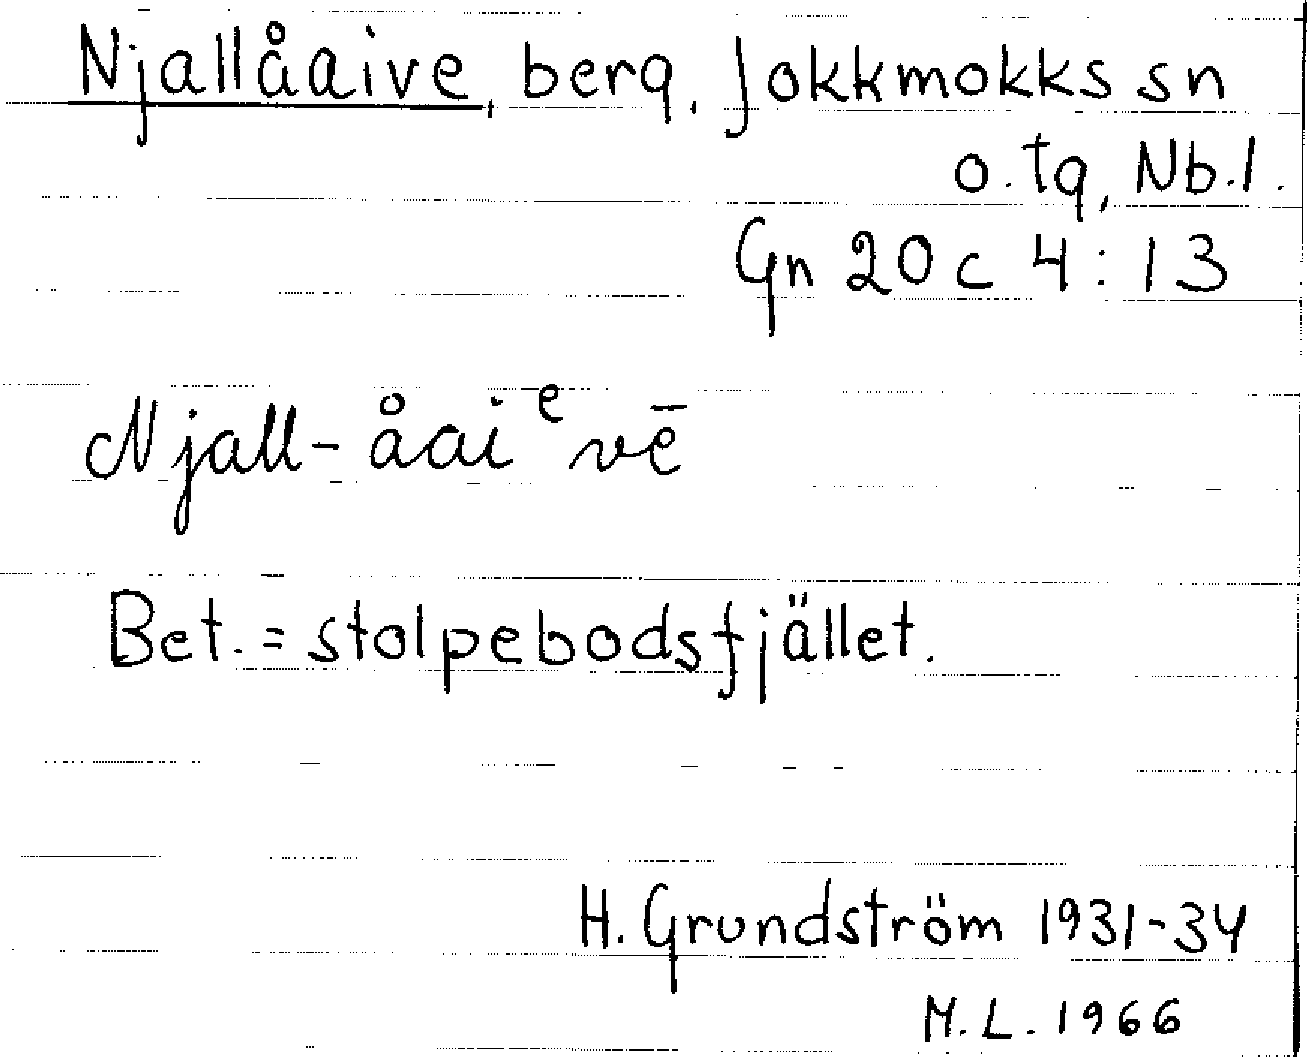 Njallåaive, berg, Jokkmokks sn
o. tg, Nb. l.
Gn 20 c 4:13
Njall-åaiᵉvē
Bet. = stolpebodsfjället.
H. Grundström 1931-34
M. L. 1966